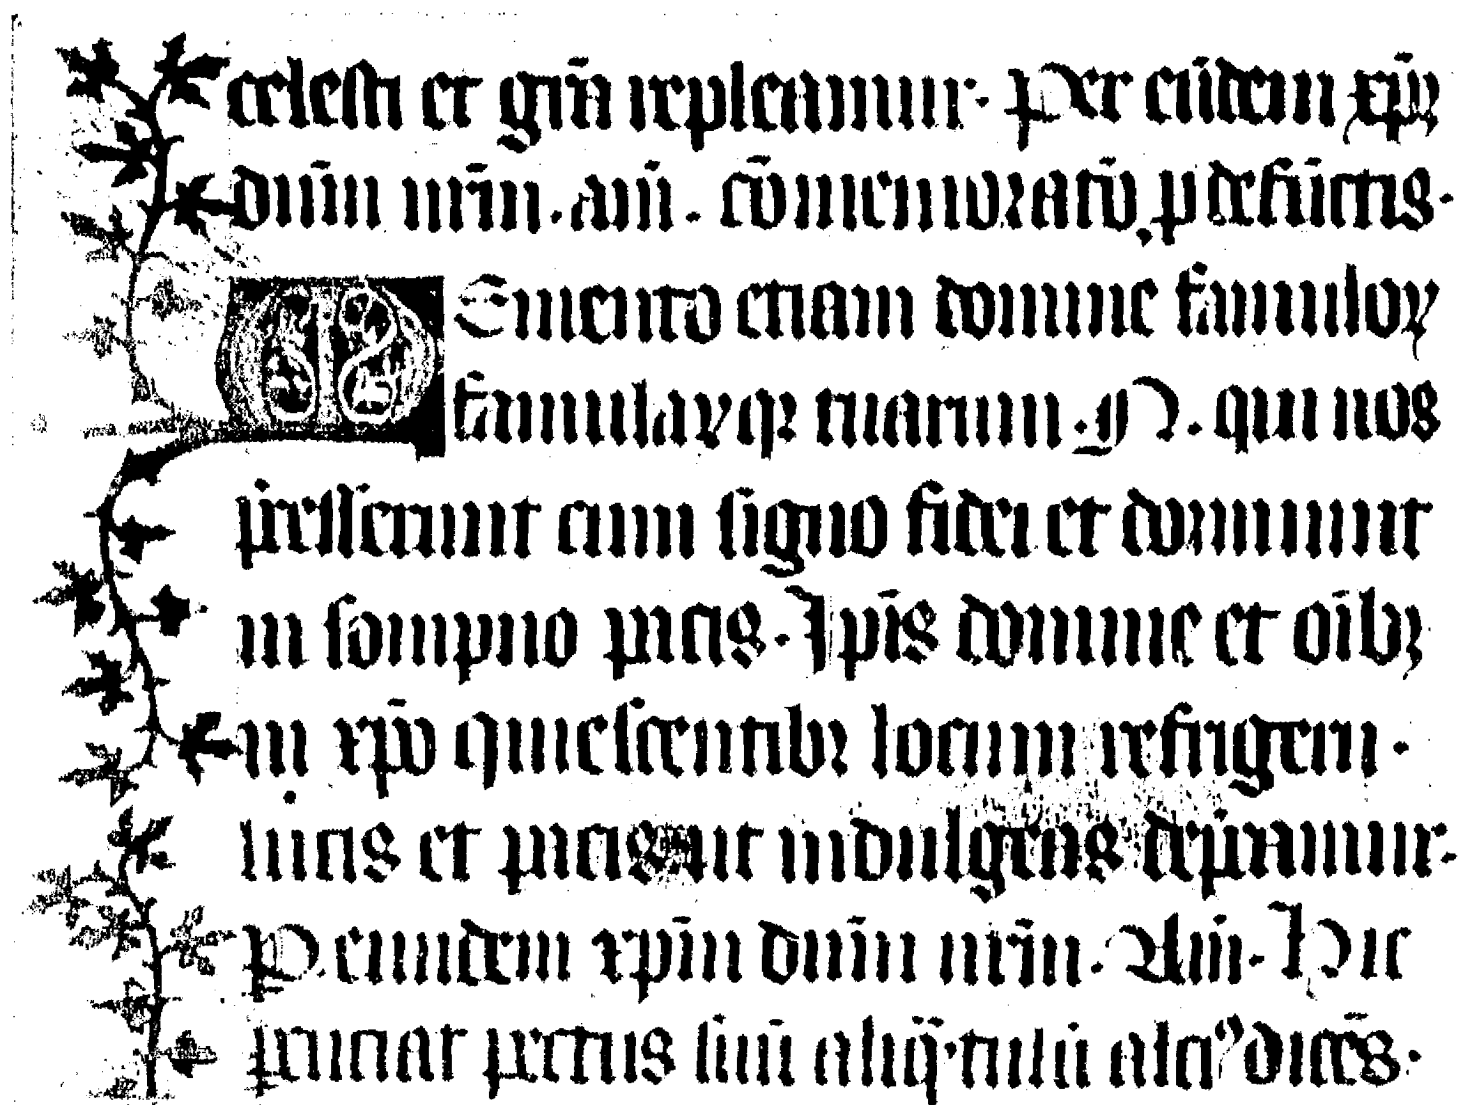 celesti et grā repleamur. Per eūdem xp̄m
dnūm nrm̄. am̄. cōmemoratō, p defūctis.
Memento etiam domine famuloꝝ
famulaꝝqꝫ tuarum .N. qui nos
p̄cesserunt cum signo fidei et dormiunt
in sompno pacis. Ip̄is domine et oībꝫ
in xp̄o quiescentibꝫ locum refrigerii.
lucis et pacis ut indulgeas dep̄camur.
P eumdem xp̄m dnūm nrm̄. Am̄. Hic
percuciat pectus suū dicēs.